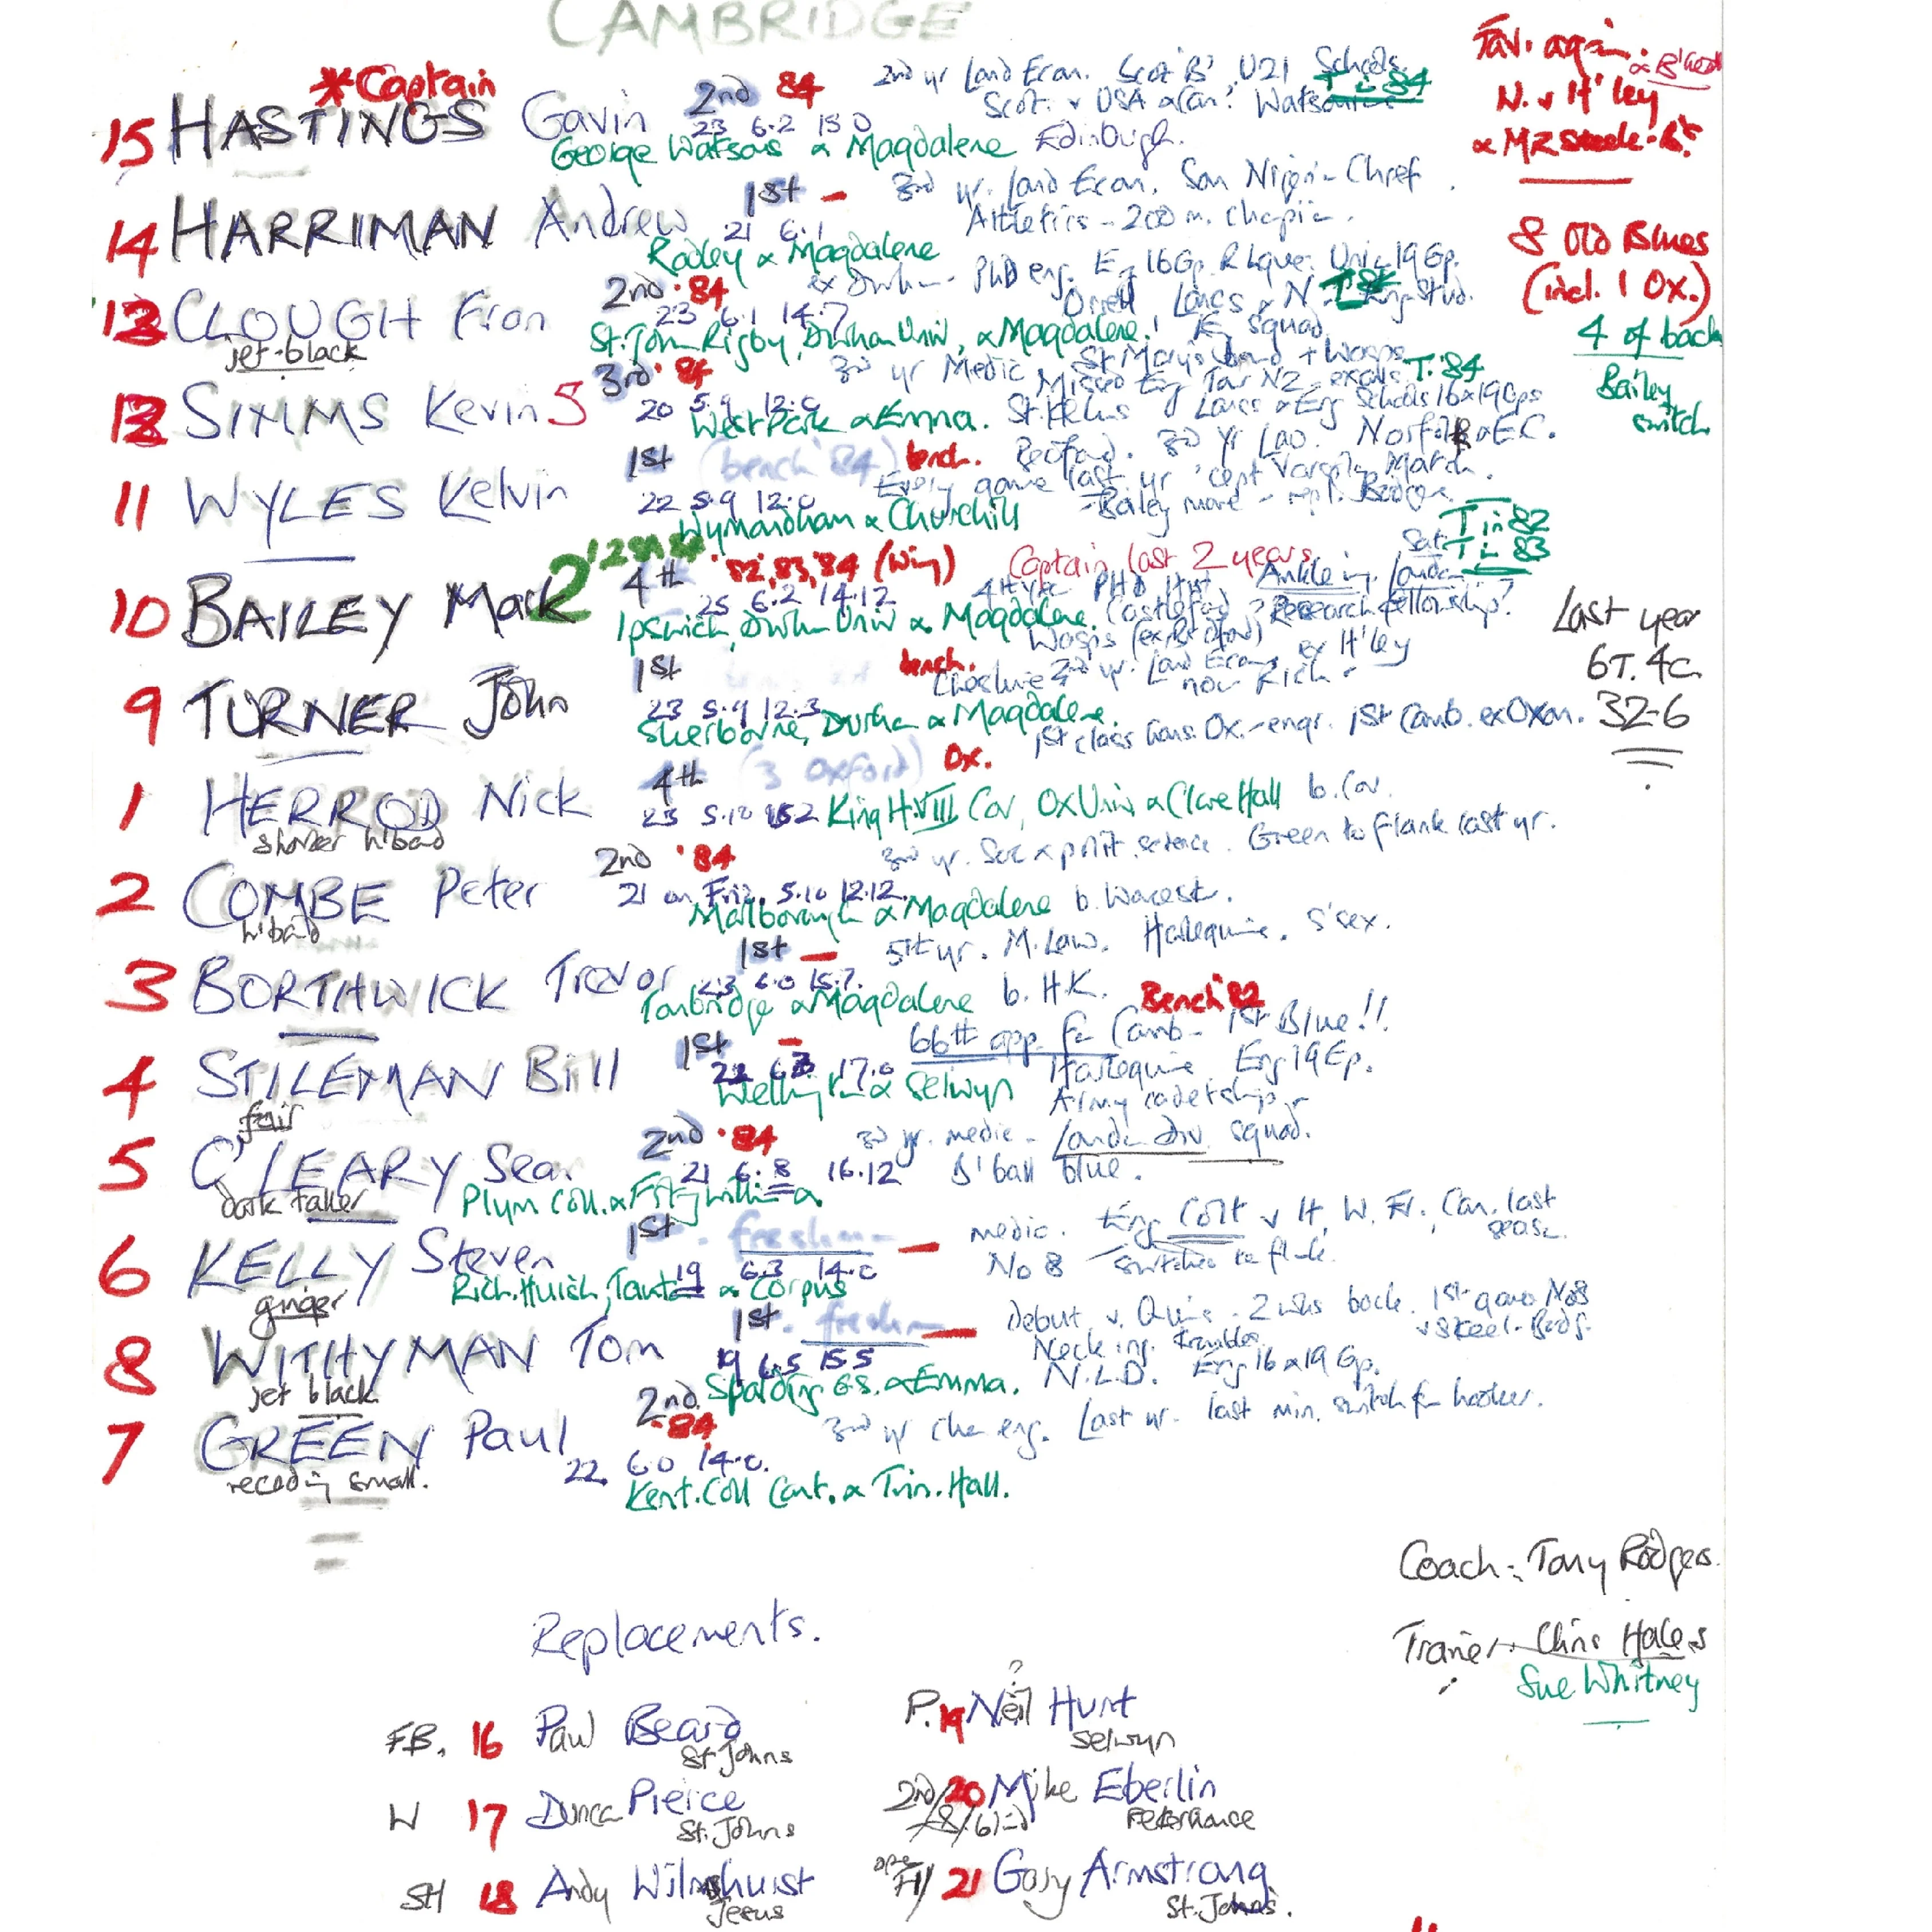 CAMBRIDGE
*Captain
15 HASTINGS Gavin 2nd 84
23 6.2 15 0
George Watsons & Magdalene Edinburgh.
2nd yr Land Econ. Scot 'B' U21 Schools.
Scot. v USA & Can. Watsonians
T in 84
Fav. again.
N. v H'ley
& MR Steele-B's
14 HARRIMAN Andrew 1st –
21 6.1
Radley & Magdalene
3rd yr. Land Econ. Son Nigerian Chief
Athletics – 200 m. champion.
8 Old Blues
(incl. 1 Ox.)
4 of back
Bailey
switch
13 CLOUGH Fran 2nd. 84
jet-black
23 6.1 14.7
St. John Rigby, Durham Univ, & Magdalene
ex Durham – PhD eng. E 16 Gp. R League. Univ. 19 Gp.
Orrell Lancs & N. Eng Stud.
E squad
12 SIMMS Kevin 5 3rd. 84
20 5.9 12.0
West Park & Emma.
3rd yr Medic
Missed Eng Tour NZ – exams. T. '84
St. Helens Lancs & Eng Schools 16 & 19 Gps
11 WYLES Kelvin 1st (bench '84) bench.
22 5.9 12.0
Wymondham & Churchill
Bedford. 3rd Yr Law. Norfolk & E.C.
Every game last yr 'cept Varsity Match.
– Bailey move – repl. Bedford
10 BAILEY Mark 2 4th '82, 83, 84 (Wing)
25 6.2 14.12
Ipswich, Durham Univ & Magdalene.
Captain last 2 years
4th yr PHD Hist
Ankle inj. London
Research fellowship?
Wasps (ex Bedford)
T in 82
T in 83
Last year
6T. 4C.
32-6
9 TURNER John 1st bench.
23 5.9 12.3
Sherborne, Durham & Magdalene.
Cheshire 2nd yr. Land Econ. ex H'ley
now Rich.
1 HERROD Nick 4th (3 Oxford) Ox.
shorter h'band
23 5.10 15.2 King H.VIII Cov, Ox Univ & Clare Hall b. Cov.
1st class hons. Ox. – engr. 1st Camb. ex Oxon.
2 COMBE Peter 2nd '84
h'band
21 on Fri. 5.10 12.12
Marlborough & Magdalene b. Worcest.
3rd yr. Soc & polit. science. Green to flank last yr.
3 BORTHWICK Trevor 1st –
23 6.0 15.7.
Tonbridge & Magdalene b. H.K.
5th yr. M. Law. Harlequins. S'sex.
Bench '82
4 STILEMAN Bill 1st –
fair
22 6.3 17.0
Wellington & Selwyn
66th app for Camb – 1st Blue!!
Harlequins Eng 19 Gp.
Army cadetship
5 O'LEARY Sean 2nd. 84
dark taller
21 6.8 16.12
Plym Coll. & Fitzwilliam
3rd yr. medic – London Div squad.
B'ball blue.
6 KELLY Steven 1st. freshman –
ginger
19 6.3 14.0
Rich. Huish, Taunton & Corpus
medic. Eng Colt v It, W, Fr, Can. last season.
No 8 switched to flank.
8 WITHYMAN Tom 1st. freshman –
jet black
19 6.5 15.5
Spalding G.S. & Emma.
Debut v. Quins – 2 wks back. 1st game No8
v Steel-Bods.
Neck inj. trouble.
N.L.D. Eng 16 & 19 Gp.
7 GREEN Paul 2nd. 84
receding small.
22. 6.0 14.0.
Kent. Coll Cant. & Trin. Hall.
3rd yr Chem eng. Last yr – last min. switch for hooker.
Coach: Tony Rodgers.
Trainer: Chris Hales
Sue Whitney
Replacements.
FB. 16 Paul Beard
St Johns
W 17 Duncan Pierce
St. Johns
SH 18 Andy Wilmshurst
Jesus
P. 19 Neil Hunt ?
Selwyn
2nd/8/6 20 Mike Eberlin
Peterhouse
FH 21 Gary Armstrong
St. Johns.